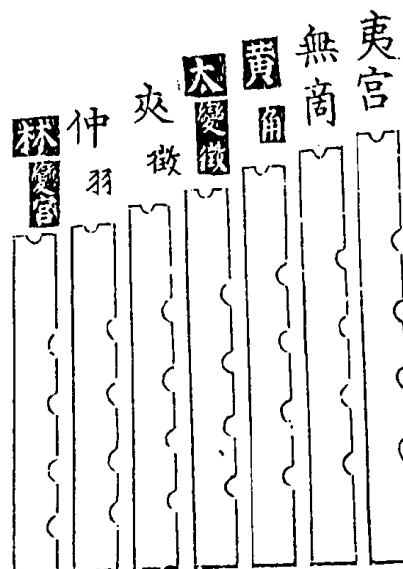 夷宮
無商
黄角
太變徵
夾徵
仲羽
林變宮